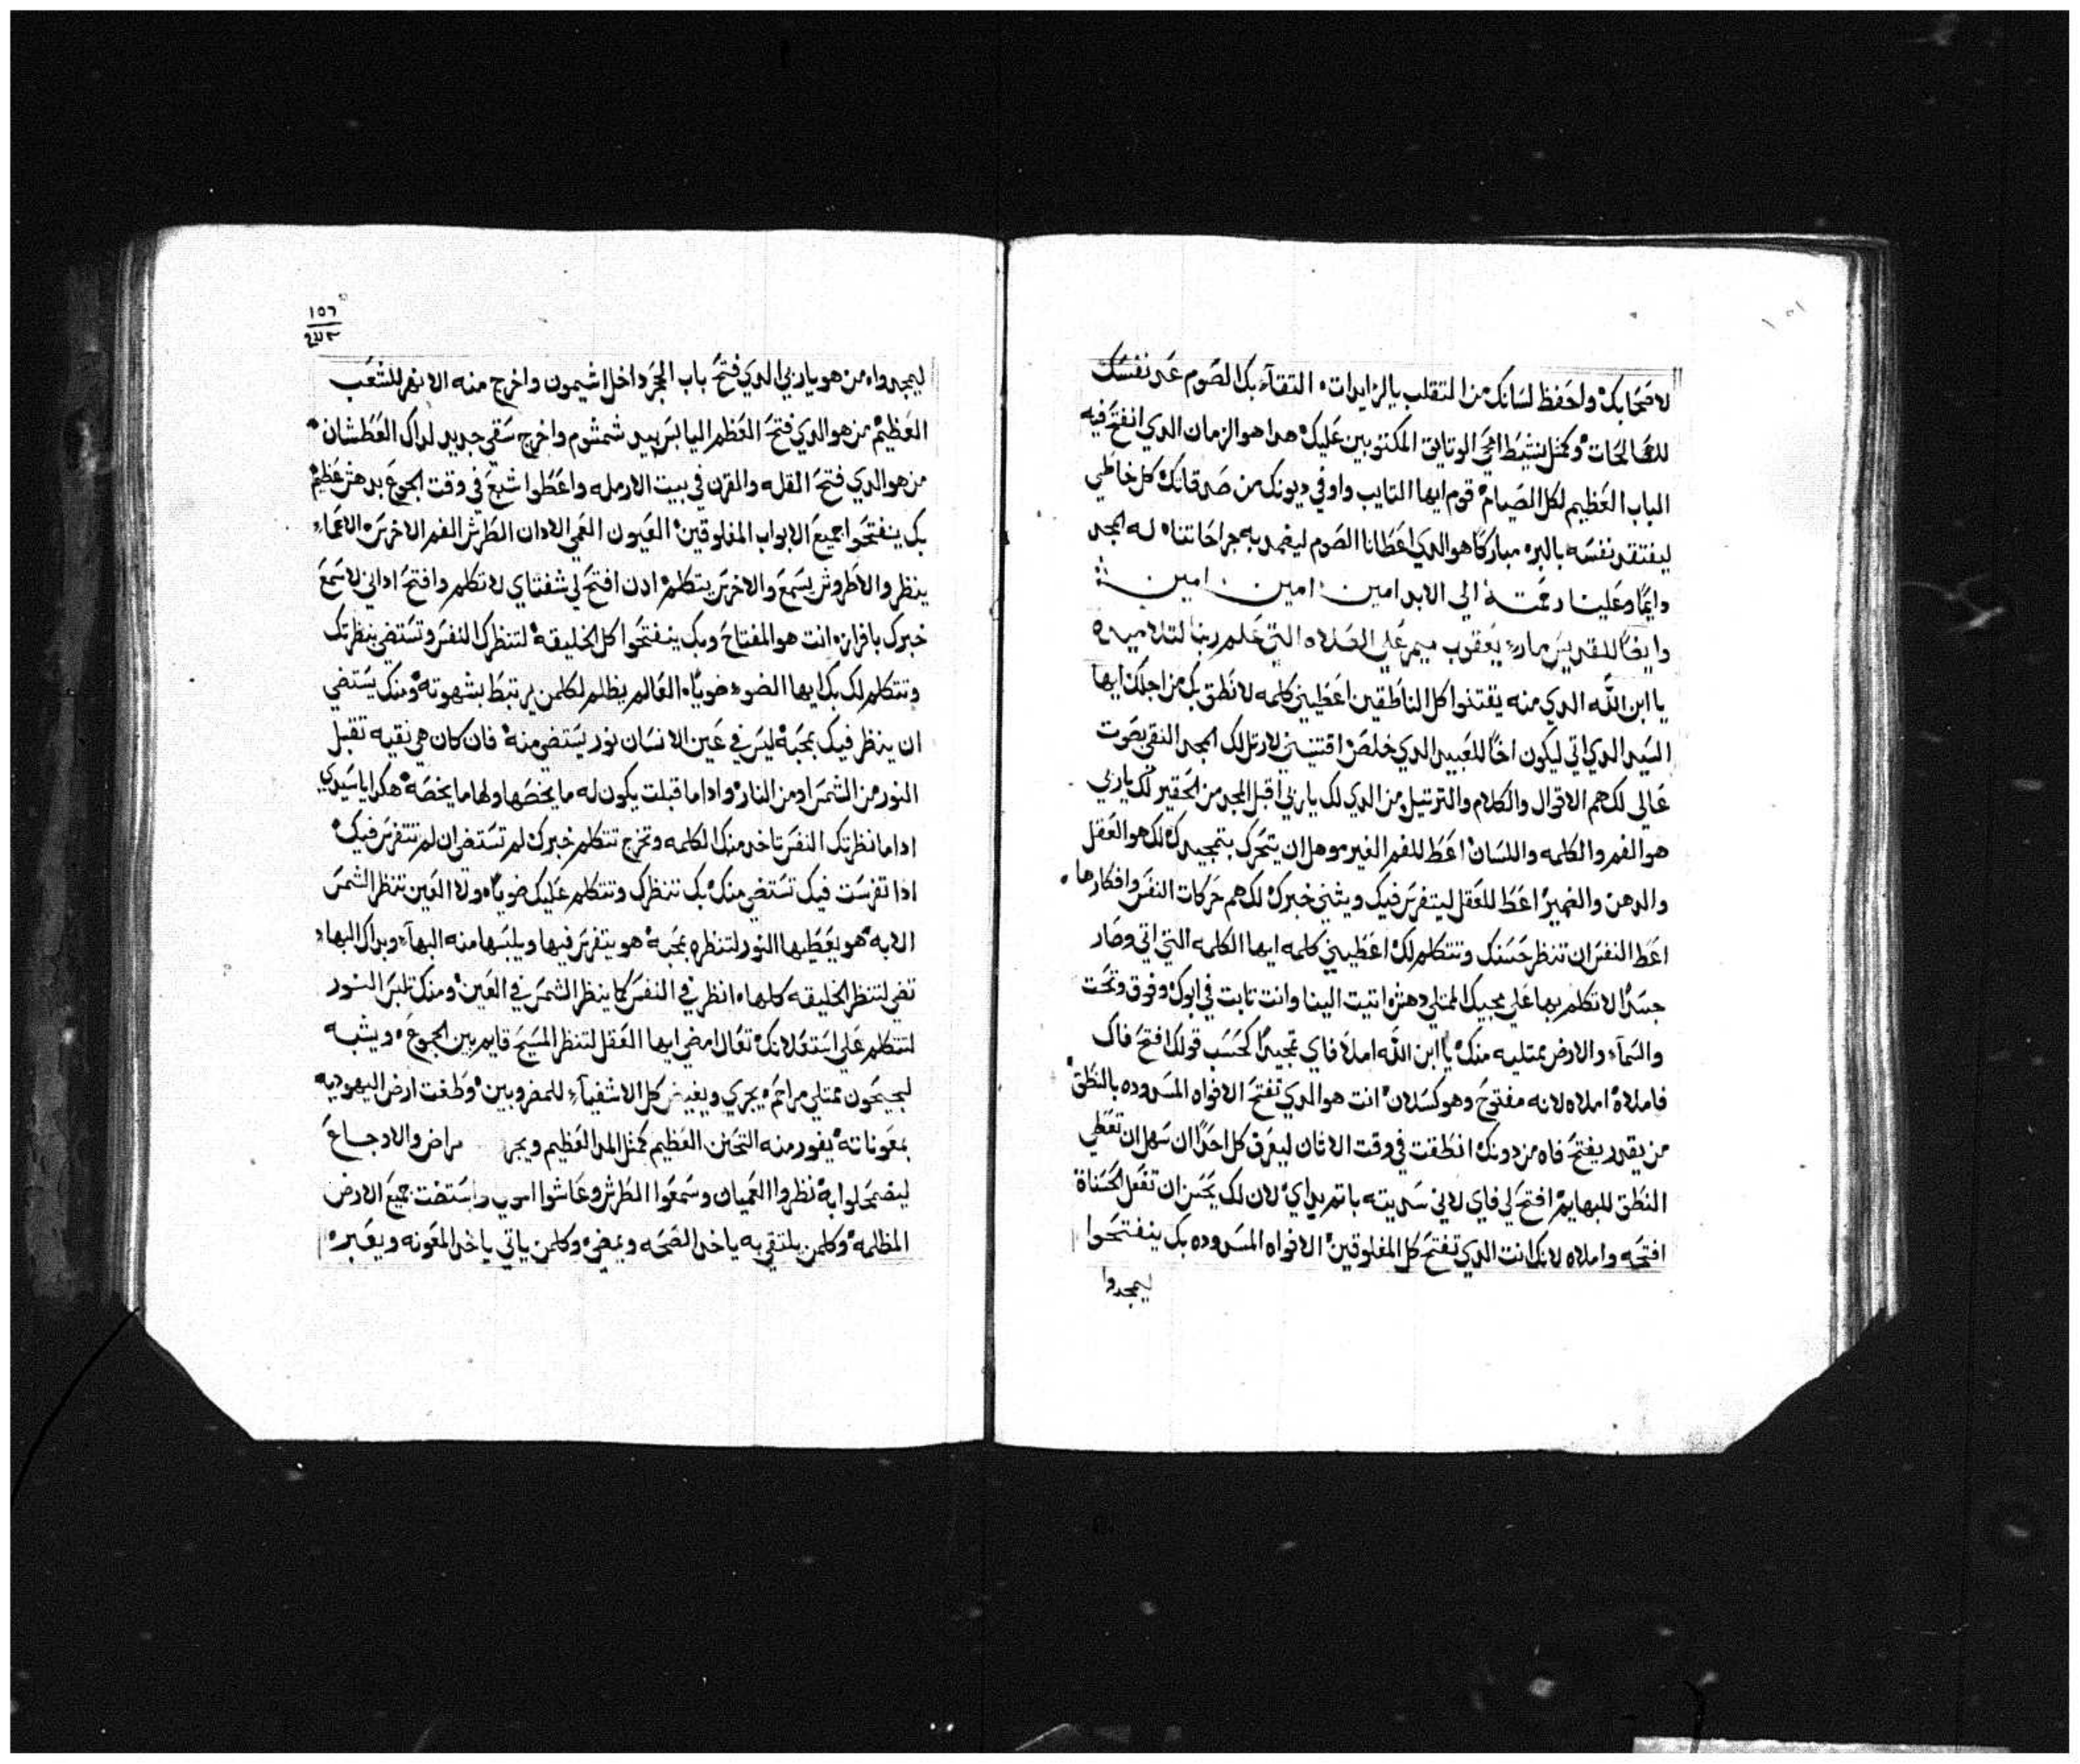 لاصحابك واحفظ لسانك من التقلب بالزايدات، التقاء بك الصوم عند نفسك
للصالحات وكمثل نشيط امحي الوتايق المكتوبين عليك هدا هو الزمان الدي انفتح فيه
الباب العظيم لكل الصيام قوم ايها التايب واوفي ديونك من صدقاتك كل خاطي
ليفتقد نفسه بالبره مباركًا هو الدي اعطانا الصوم ليضمد به جراحاتنا له المجد
دايمًا وعلينا رحمته الي الابد امين امين امين
وايضًا للقديس مار يعقوب ميمر علي الصلاه التي علم ربنا لتلاميده
يا ابن الله الدي منه يقتنوا كل الناطقين اعطيني كلمه لانطق بك من اجلك ايها
السيد الدي اتي ليكون اخًا للعبيد الدي خلص اقتنيني لارتل لك المجد النقي بصوت
عالي لك هم الاقوال والكلام والترتيل ومن الدي لك يا ربي اقبل المجد من الحقير لك يا ربي
هو الفم والكلمه واللسان اعط للفم الغير موهل ان يتحرك بتمجيدك لك هو العقل
والدهن والضمير اعط للعقل ليتفرس فيك ويثني خبرك لك هم حركات النفس وافكارها
اعط النفس ان تنظر حسنك وتتكلم لك اعطيني كلمه ايها الكلمه التي اتي وصار
جسدًا لاتكلم بها علي مجيك الممتلي دهش اتيت الينا وانت تابت في ابوك وفوق وتحت
والسماء والارض ممتليه منك يا ابن الله املا فاي تمجيدًا كحسب قولك افتح فاك
فاملاه املاه لانه مفتوح وهو كسلان انت هو الدي تفتح الافواه المسدوده بالنطق
من يقدر يفتح فاه من دونك انطقت في وقت الاتان ليعرف كل احدًا ان سهل ان تعطي
النطق للبهايم افتح لي فاي لاني سديته باتم يداي لان لك يحسن ان تفعل الحسناة
افتحه واملاه لانك انت الدي تفتح كل المغلوقين الافواه المسدوده بك ينفتحوا
ليمجدوا
١٥٦
ليمجدواه من هو يا ربي الدي فتح باب الحجر داخل اشيمون واخرج منه الانهر للشعب
العظيم من هو الدي فتح العظم اليابس بيد شمشوم واخرج سقي جديد لداك العطشان
من هو الدي فتح القله والقرن في بيت الارمله واعطوا شبع في وقت الجوع بدهش عظيم
بك ينفتحوا جميع الابواب المغلوقين العيون العمي الادان الطرش الفم الاخرس الاعماء
ينظر والاطروش يسمع والاخرس يتكلم ادن افتح لي شفتاي لاتكلم وافتح اداني لاسمع
خبرك بافرازه انت هو المفتاح وبك ينفتحوا كل الخليقه لتنظرك النفس وتستضي بنظرتك
وتتكلم لك بك ايها الضوء ضويًاه العالم يظلم لكلمن يرتبط بشهوته ومنك يستضي
ان ينظر فيك بمحبه ليس في عين الانسان نور يستضي منه فان كان هي نقيه تقبل
النور من الشمس او من النار وادا ما قبلت يكون له ما يخصها ولها ما يخصه هكدا يا سيدي
ادا ما نظرتك النفس تاخد منك الكلمه وتخرج تتكلم خبرك لم تستضي ان لم تتفرس فيك
ادا تفرست فيك تستضي منك بك تنظرك وتتكلم عليك ضويًاه ولا العين تنظر الشمس
الا به هو يعطيها النور لتنظره بمحبه هو يتفرس فيها ويلبسها منه البهاء وبداك البهاء
تضي لتنظر الخليقه كلهاه انظر في النفس كما ينظر الشمس في العين ومنك تلبس النور
لتتكلم علي استعلانك تعال امضي ايها العقل لتنظر المسيح قايم بين الجموع ه ويشبه
لجيحون ممتلي مراحم ه يجري ويفيض كل الاشفياء للمضروبين وطغت ارض اليهوديه
بمعوناته يفور منه التحنن العظيم كمثل المد العظيم ويجر مراض والاوجاع
ليضمحلوا به نظروا العميان وسمعوا الطرش وعاشوا واستضت جميع الارض
المظلمه وكلمن يلتقي به ياخد الصحه ويمضي وكلمن ياتي ياخد المعونه ويعبره